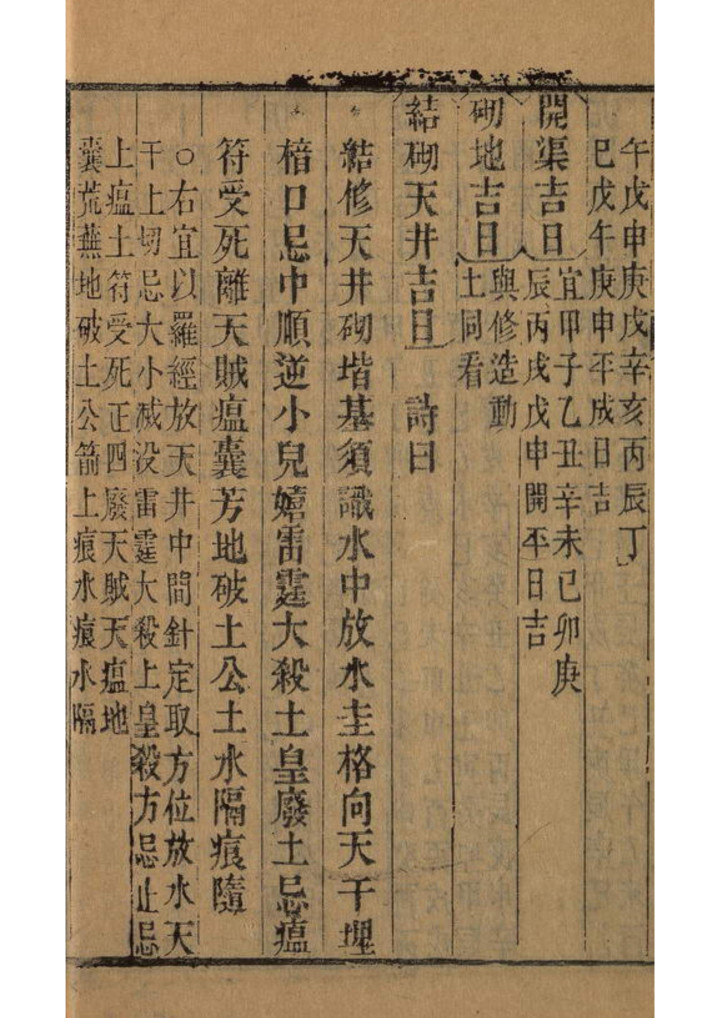 午戊申庚戌辛亥丙辰丁
巳戊午庚申平成日吉
開渠吉日
宜甲子乙丑辛未己卯庚
辰丙戌戊申開平日吉
砌地吉日
與修造動
土同看
結砌天井吉日 詩曰
結修天井砌堦基須識水中放水圭格向天干埋
楿口忌中順逆小兒嬉雷霆大殺土皇廢土忌瘟
符受死離天賊瘟囊芳地破土公土水隔痕隨
○右宜以羅經放天井中間針定取方位放水天
干上切忌大小滅没雷霆大殺上皇殺方忌止忌
上瘟土符受死正四廢天賊天瘟地
囊荒蕪地破土公箭上痕水痕水隔